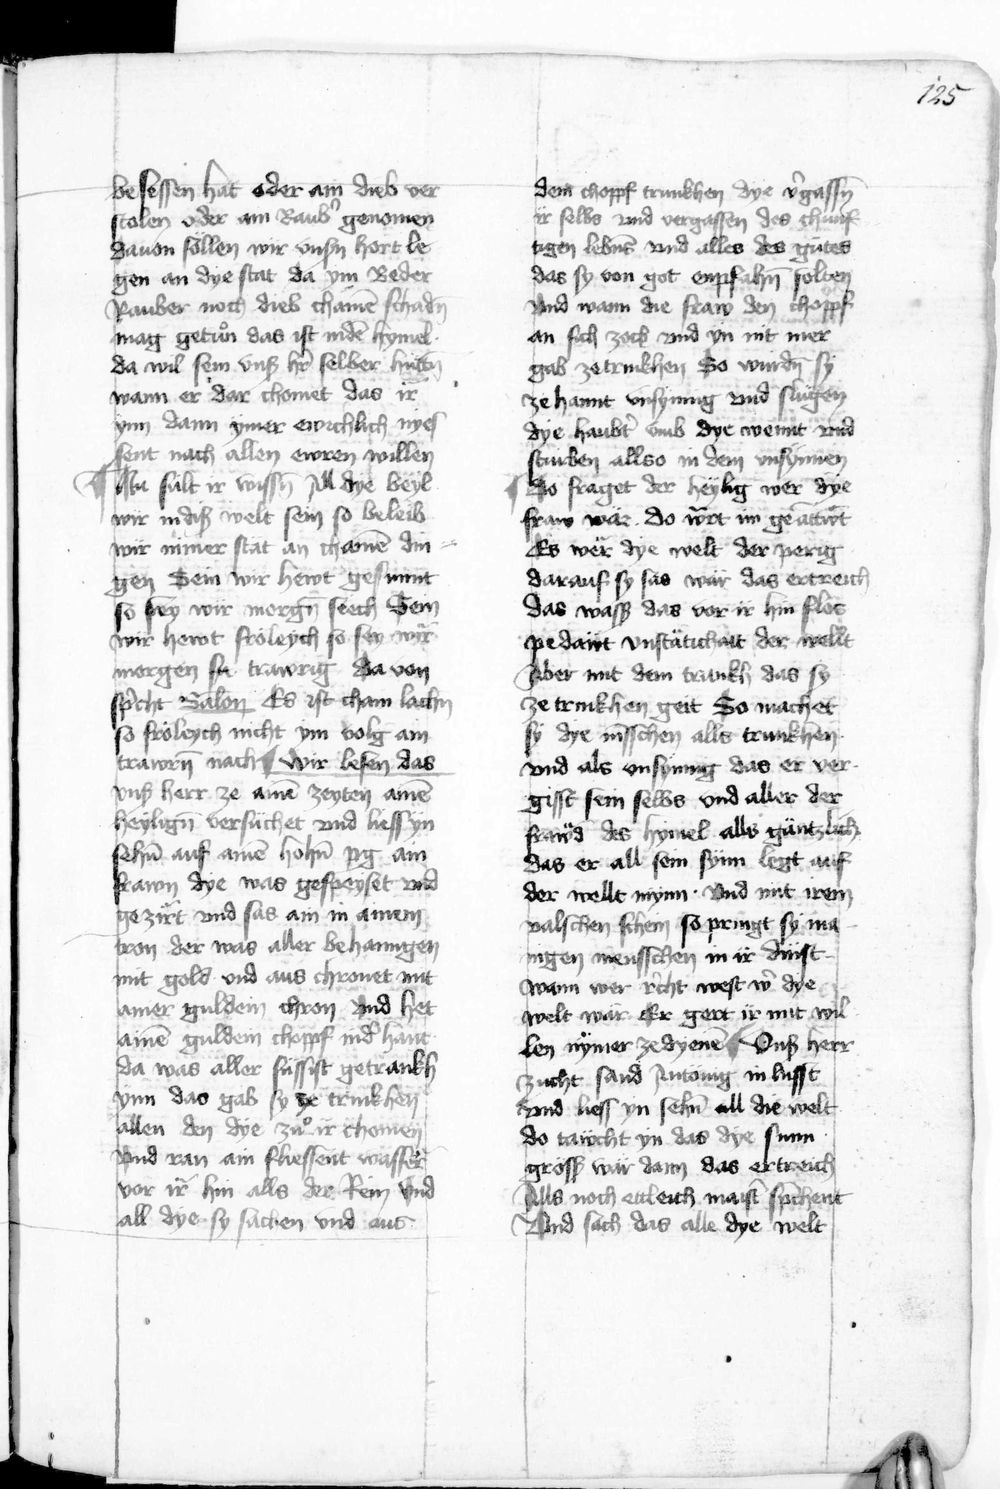 125
besessen hat oder ain dieb ver
stolen oder am Raub genomen
dauon söllen wir vnsn hort le
gen an dye stat da ym Weder
Rauber noch dieb chainē schadn
mag getůn das ist indē hymel
da wil sein vnß hr selber huttn
wann er dar chomet das ir
ynn dann ymer ewichlich nyes
sent nach allen ewren willen
Nu sült ir wissn All dye weyl
wir in diß welt sein so beleib
wir nimer stat an chainē din
gen Sein wir hewt gesunnt
so sey wir morgn siech Sein
wir hewt fröleych so sey wir
morgen fu trawrig da von
spicht Salon Es ist cham lachn
so fröleych nicht ym volg am
trawrn nach Wir lesen das
vnß herr ze ainē zeyten ainē
heyligñ versüchet vnd liess yn
sehn auf ainē hohn pg ain
frawn dye was gespeyset vnd
gezirt vnd sas ain in ainem
tron der was aller behanngen
mit gold vnd aus chronet mit
ainer guldein chron vnd het
ainē guldein choppf in d hant
da was aller süssist getrankh
ynn das gab sy ze trinkhen
allen den dye zů ir chomen
vnd ran ain fliessent wasser
vor ir hin alls der Rein vnd
all dye sy sachen vnd aus
dem choppf trunkhen dye vgassn
ir selbs vnd vergassen des chunf
tigen lebns vnd alles des gutes
das sy von got enpfahn solten
Vnd wann die fraw den choppf
an sich zoch vnd yn nit mer
gab zetrinkhen So wurdn sy
ze hannt vnsynnig vnd slugen
dye haubt vmb dye wennt vnd
sturben allso in dem vnsynnen
Do fraget der heylig wer dye
fraw wär. Do wrt im geantwt
Es wër dye welt der perig
darauf sy sas wär das ertreich
das wasß das vor ir hin flos
pedawt vnstätichait der wellt
Aber mit dem trankh das sy
ze trinkhen geit So machet
sy dye mēsschen alls trunkhen
vnd als vnsynnig das er ver
gisst sein selbs vnd aller der
frawd des hymel alls gäntzlich
das er all sein synn legt auf
der wellt mynn. Vnd mit irem
valschen schein so pringt sy ma
nigen mensschen in ir dinst
wann wer richt west wer dye
welt wär Er gert ir mit wil
len nymer ze dyenē Vnß herr
zucht sand Antonig in lusst
vnd liess yn sehn all die welt
do tawcht yn das dye sunn
grosß wär dann das ertreich
Alls noch ettleich maist sprechent
Vnd sach das alle dye welt